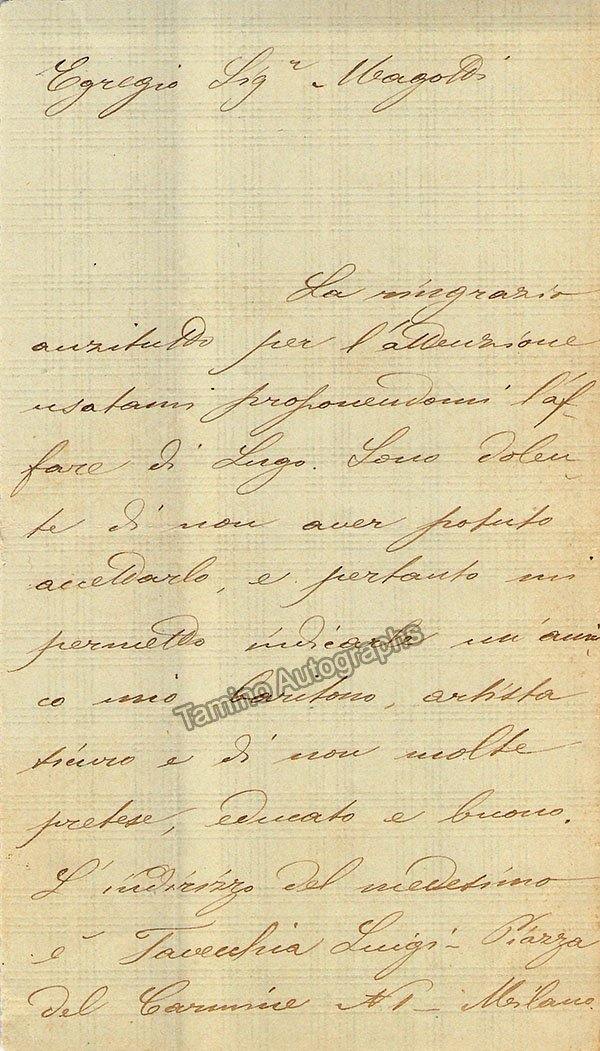 Egregio Sigr Magotti
La ringrazio
anzitutto per l'attenzione
usatami proponendomi l'af-
fare di Lugo. Sono dolen-
te di non aver potuto
accettarlo, e pertanto mi
permetto indicarle un'ami-
co mio baritono, artista
sicuro e di non molte
pretese, educato e buono.
L'indirizzo del medesimo
è Tavecchia Luigi - Piazza
del Carmine N 1 - Milano.
Tamino Autographs